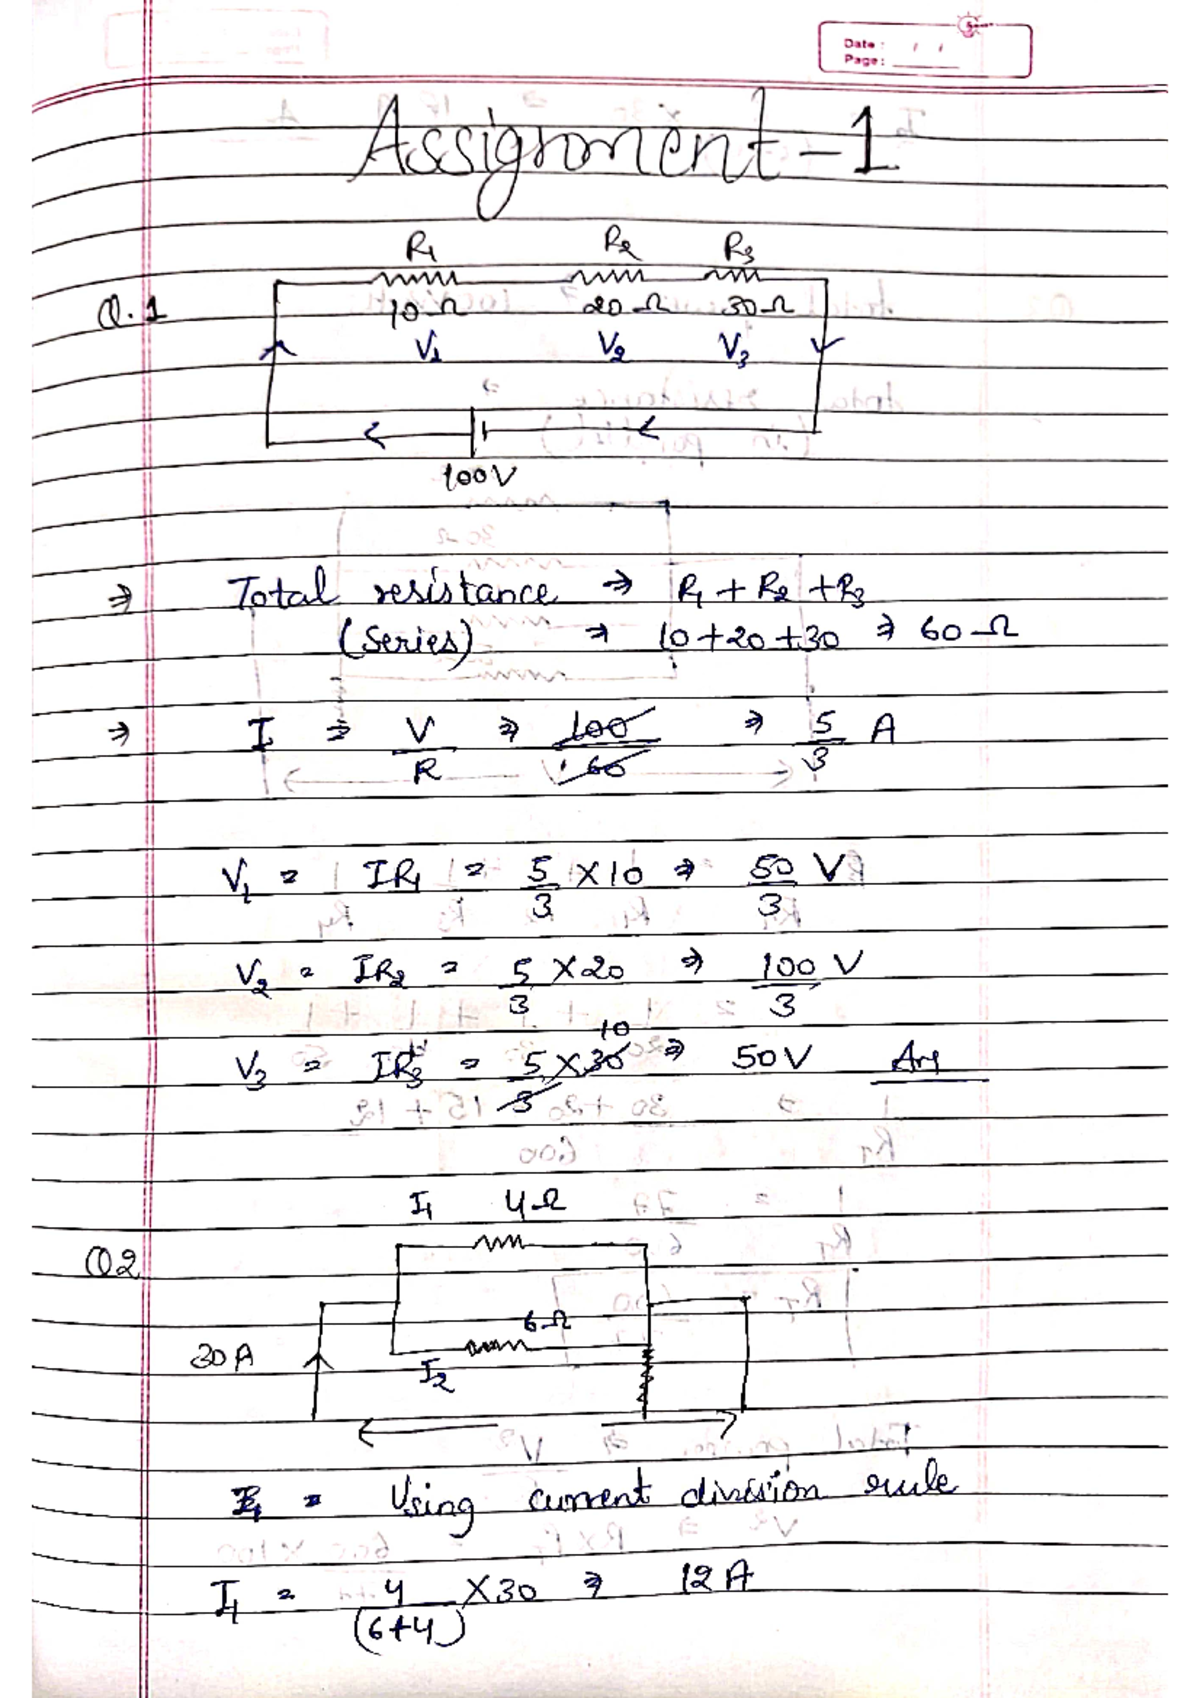 Date :
Page:
Assignment-1
R1 R2 R3
Q.1 10Ω 20Ω 30Ω
V1 V2 V3
100V
⇒ Total resistance ⇒ R1 + R2 + R3
(Series) ⇒ 10+20+30 ⇒ 60Ω
⇒ I ⇒ V/R ⇒ 100/60 ⇒ 5/3 A
V1 = IR1 = 5/3 ×10 ⇒ 50/3 V
V2 = IR2 = 5/3 ×20 ⇒ 100/3 V
10
V3 = IR3 = 5/3 ×30 ⇒ 50V Ans
I1 4Ω
Q2
6Ω
30A
I2
I1 = Using current division rule
I1 = 4/(6+4) ×30 ⇒ 12A